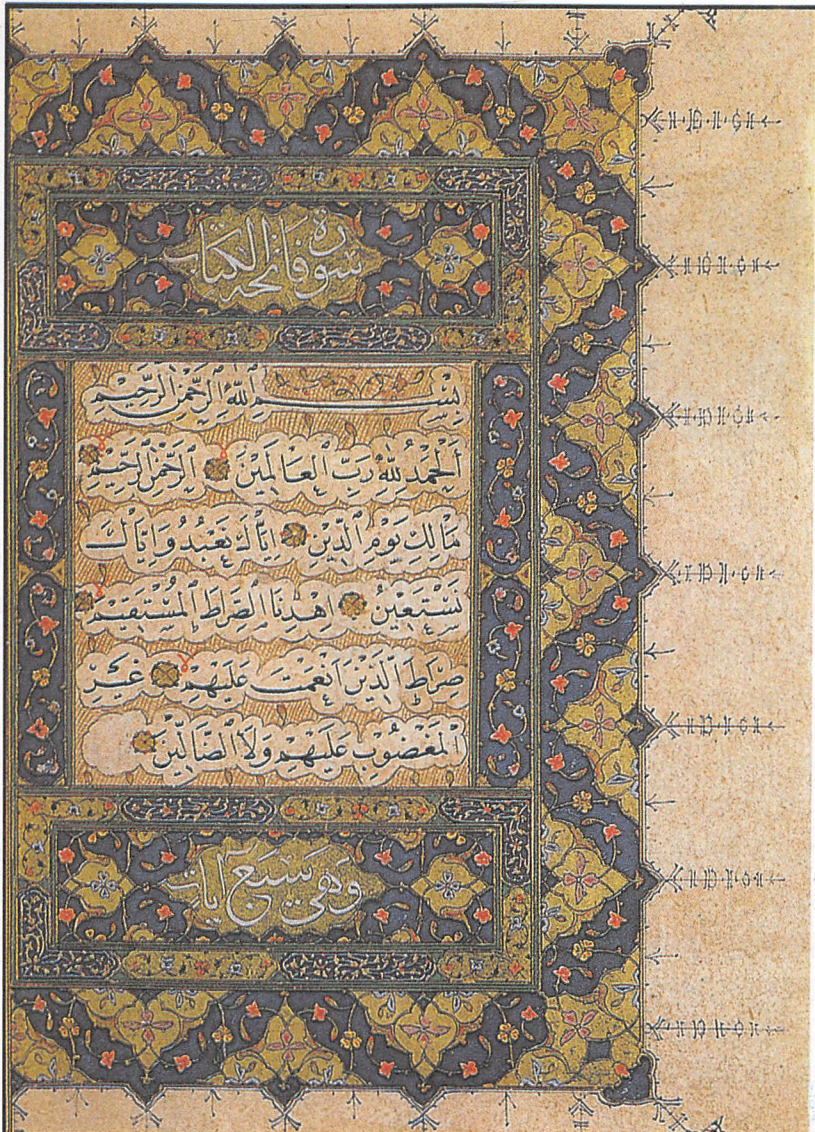 سورة فاتحة الكتاب
بِسْمِ ٱللَّهِ ٱلرَّحْمٰنِ ٱلرَّحِيمِ
اَلْحَمْدُ لِلّٰهِ رَبِّ ٱلْعَالَمِينَ ٱلرَّحْمٰنِ ٱلرَّحِيمِ
مَالِكِ يَوْمِ ٱلدِّينِ اِيَّاكَ نَعْبُدُ وَاِيَّاكَ
نَسْتَعِينُ اِهْدِنَا ٱلصِّرَاطَ ٱلْمُسْتَقِيمَ
صِرَاطَ ٱلَّذِينَ اَنْعَمْتَ عَلَيْهِمْ غَيْرِ
ٱلْمَغْضُوبِ عَلَيْهِمْ وَلَا ٱلضَّالِّينَ
وهي سبع آيات